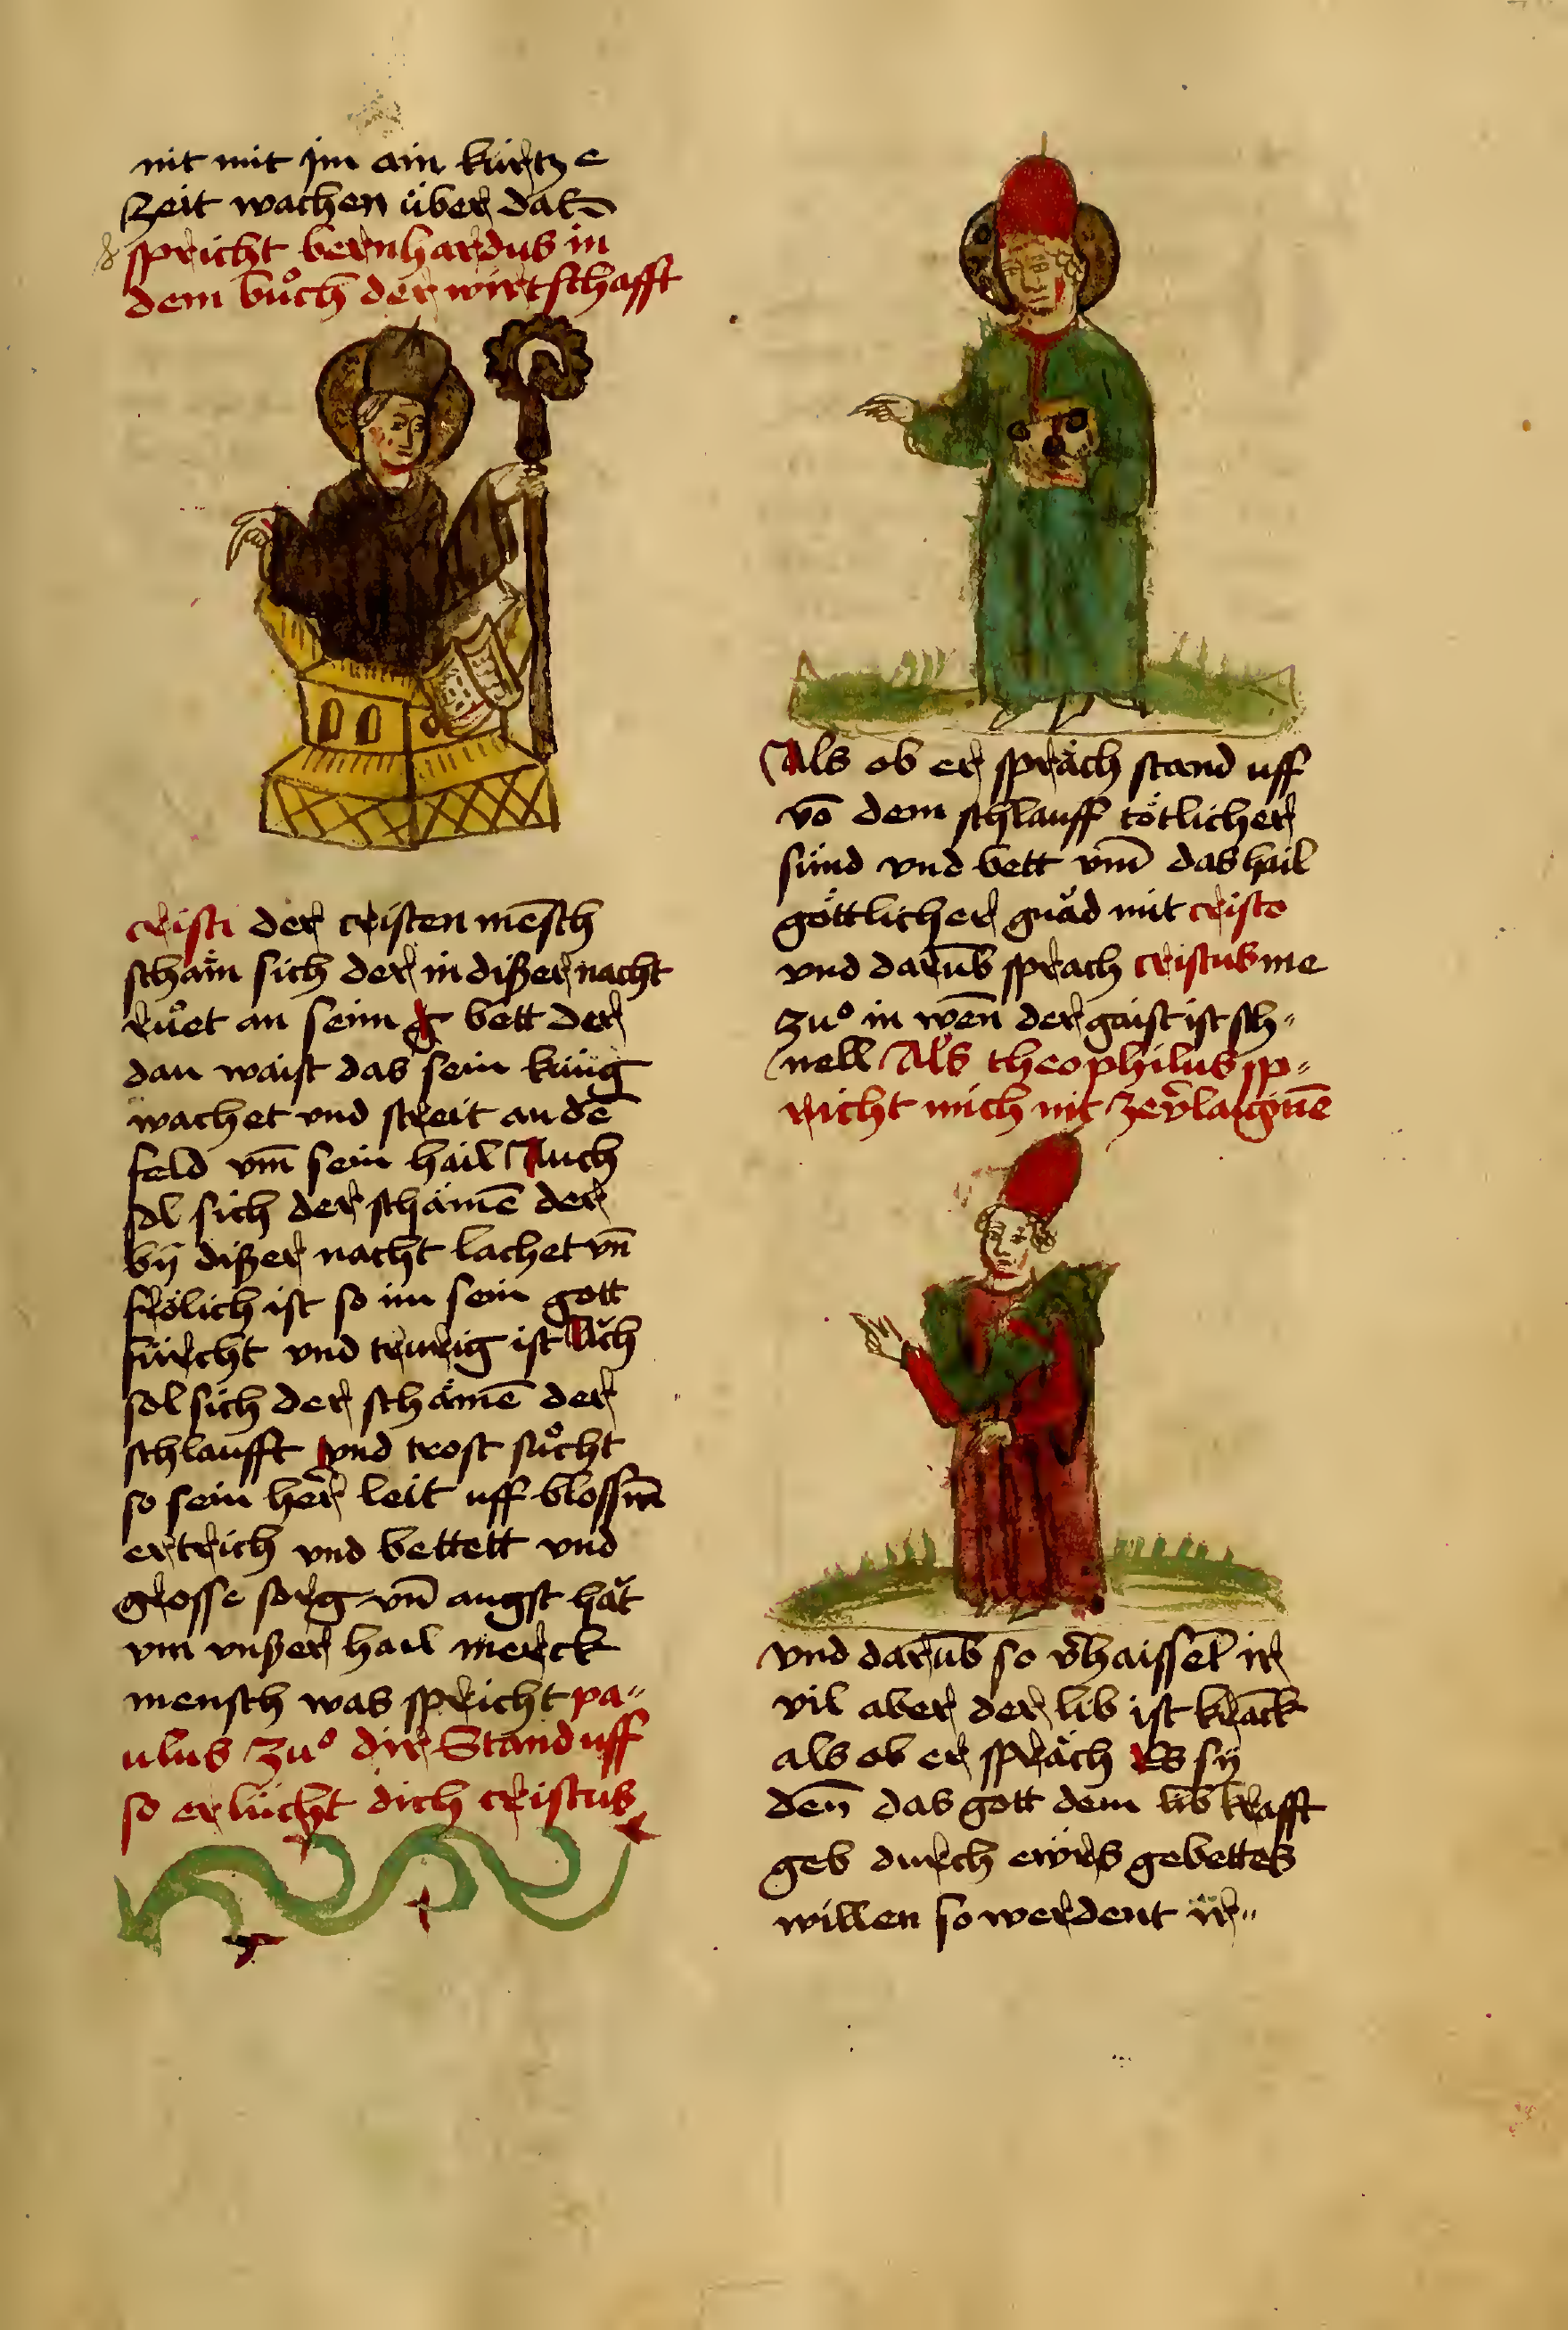 nit mit jm ain kúrtze
zeit wachen über dat̄
spricht bernhardus in
dem bůch der wirtschafft
cristi der cristen mēsch
scham sich der in dißer nacht
růet an seim bett der
dan waist das sein küng
wachet vnd streit an dē
feld vm̄ sein hail Auch
sol sich der schämē der
bÿ dißer nacht lachet vn̄
frölich ist so im sein gott
fürcht vnd trurig ist Ach
sol sich der schämē der
schlaufft vnd trost sůcht
so sein her̄ leit uff blossm̄
ertrich vnd bettett vnd
grosse sorg vn̄ angst hǎt
vm vnßer hail merck
mensch was spricht pa-
ulus zuͦ dir Stand uff
so erlücht dich cristus
Als ob er spräch stand uff
vō dem schlauff tötlicher
sünd vnd bett vm̄ das hail
göttlicher gnǎd mit cristo
vnd darūb sprach cristus me
zuͦ in wen̄ der gaist ist sch-
nell Als theophilus sp-
richt mich nit ze v̄laugnē
vnd darūb so v̄haissēt ir
vil aber der lib ist krāck
als ob er spräch Es sÿ
den̄ das gott dem lib krafft
geb durch ewrs gebettes
willen so werdent ir-